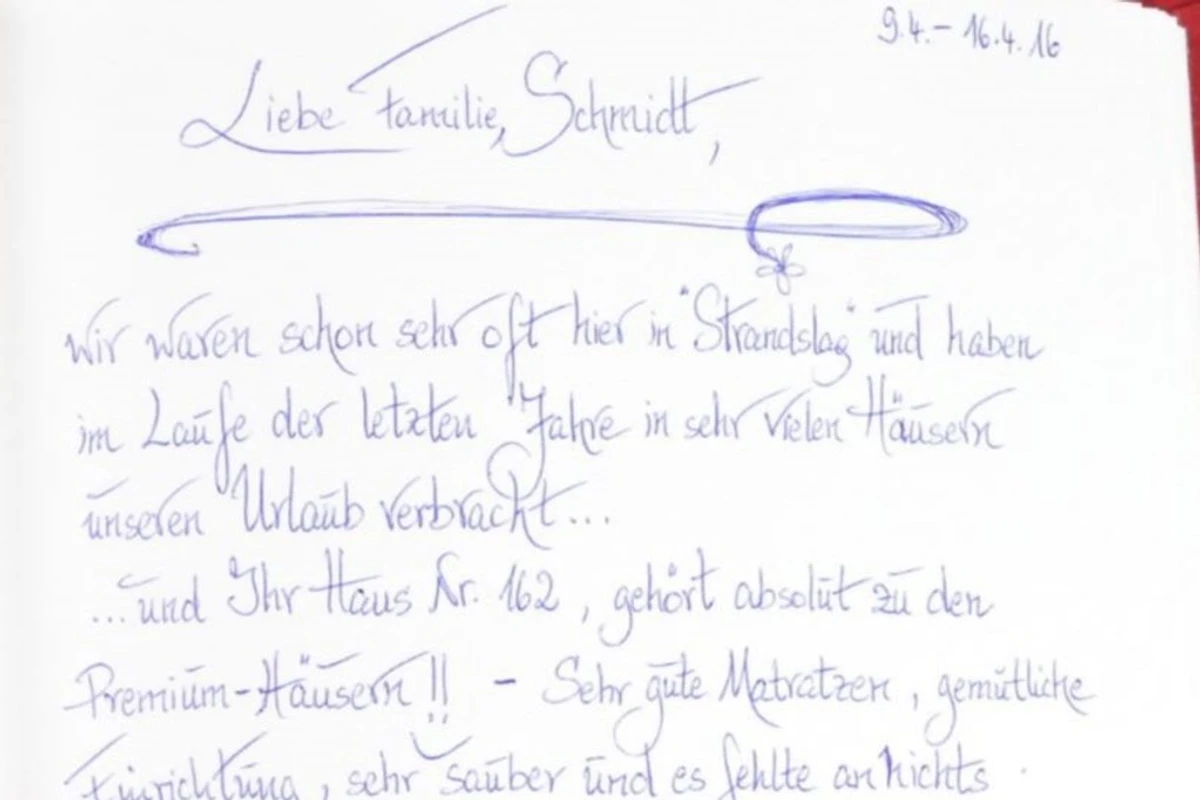 9.4.- 16.4.16
Liebe Familie, Schmidt,
wir waren schon sehr oft hier in "Strandslag" und haben
im Laufe der letzten Jahre in sehr vielen Häusern
unseren Urlaub verbracht...
...und Ihr Haus Nr. 162, gehört absolut zu den
Premium-Häusern!! - Sehr gute Matratzen, gemütliche
Einrichtung, sehr sauber und es fehlte an nichts.